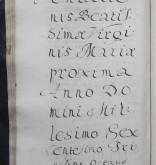 nis Beatis
simæ Virgi
nis Mariæ
proxima
Anno Do
mini Mil
lesimo Sex
Centesimo Tri